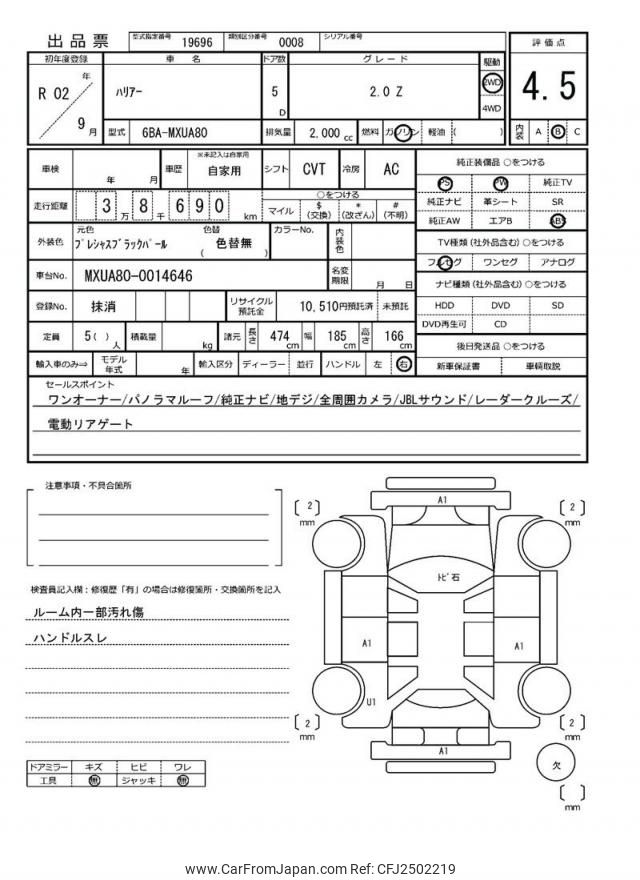 出品票
型式指定番号 19696 類別区分番号 0008 シリアル番号
初年度登録 車名 ドア数 グレード 駆動 評価点
R 02 年 9 月
ハリアー
5 D
2.0 Z
2WD
4WD
4.5
型式 6BA-MXUA80 排気量 2,000 cc 燃料 ガソリン 軽油 ( )
内装 A B C
車検 年 月 車歴 ※未記入は自家用 自家用 シフト CVT 冷房 AC
純正装備品 ○をつける
PS PW 純正TV
純正ナビ 革シート SR
純正AW エアB ABS
走行距離 3 万 8 千 6 9 0 km
○をつける
マイル $ (交換) * (改ざん) # (不明)
外装色 元色 プレシャスブラックパール 色替 ( 色替無 ) カラーNo. 内装色
TV種類 (社外品含む) ○をつける
フルセグ ワンセグ アナログ
車台No. MXUA80-0014646 名変期限 月 日
ナビ種類 (社外品含む) ○をつける
HDD DVD SD
DVD再生可 CD
登録No. 抹消 リサイクル預託金 10,510円預託済 未預託
定員 5( ) 人 積載量 kg 諸元 長さ 474 cm 幅 185 cm 高さ 166 cm
後日発送品 ○をつける
新車保証書 車輌取説
輸入車のみ⇒ モデル年式 年 輸入区分 ディーラー 並行 ハンドル 左 右
セールスポイント
ワンオーナー/パノラマルーフ/純正ナビ/地デジ/全周囲カメラ/JBLサウンド/レーダークルーズ/
電動リアゲート
注意事項・不具合箇所
検査員記入欄：修復歴「有」の場合は修復箇所・交換箇所を記入
ルーム内一部汚れ傷
ハンドルスレ
ドアミラー キズ ヒビ ワレ
工具 無 ジャッキ 無
A1
2 mm
2 mm
トビ石
A1
A1
U1
2 mm
2 mm
A1
欠
mm
www.CarFromJapan.com Ref: CFJ2502219